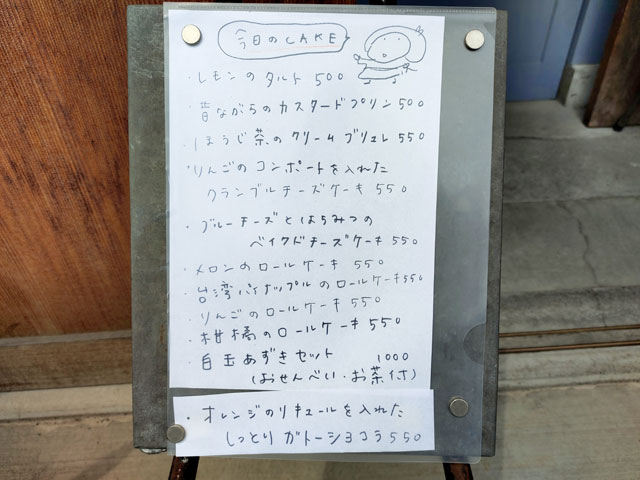 今日のCAKE
・レモンのタルト 500
・昔ながらのカスタードプリン 500
・ほうじ茶のクリームブリュレ 550
・りんごのコンポートを入れた
クランブルチーズケーキ 550
・ブルーチーズとはちみつの
ベイクドチーズケーキ 550
・メロンのロールケーキ 550
・台湾パイナップルのロールケーキ 550
・りんごのロールケーキ 550
・柑橘のロールケーキ 550
・白玉あずきセット 1000
(おせんべい・お茶付)
・オレンジのリキュールを入れた
しっとりガトーショコラ 550